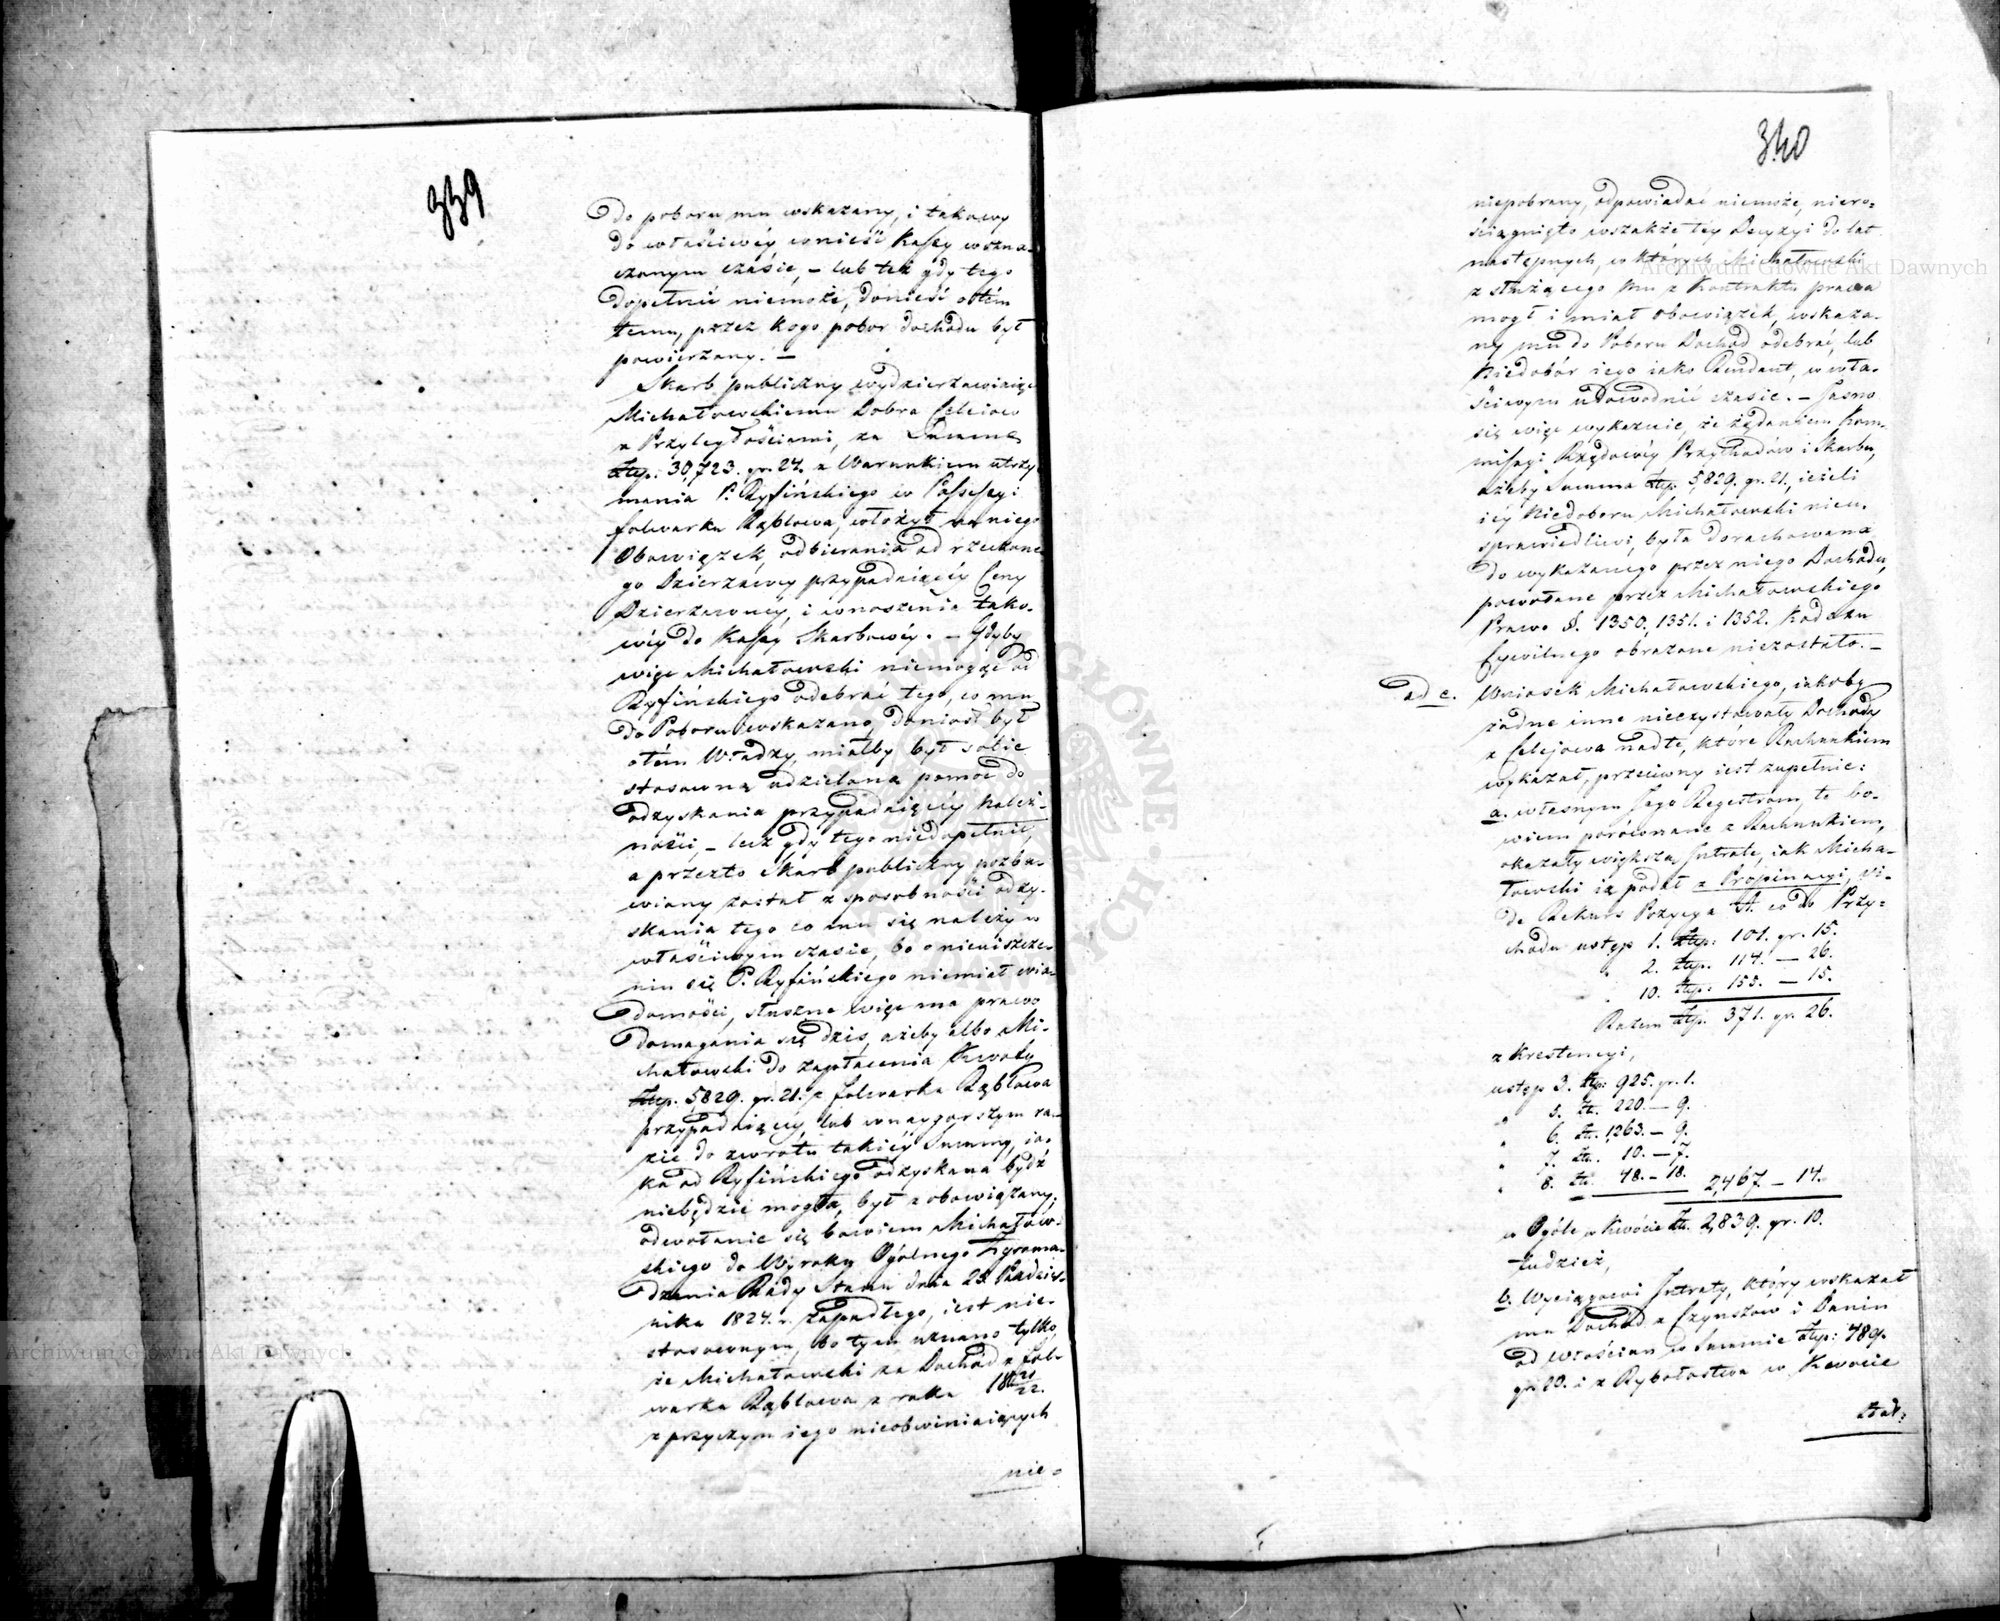 339
do poboru mu wskazany, i takowy
do właściwéy wnieść Kassy wozna-
czonym czásie, – lub też gdy tego
dopełnić niemoże, donieść otém
temu, przez kogo pobor dochodu był
powierzany. –
Skarb publiczny wydzierzawiaiąc
Michałowskiemu Dobra Celeiow
z Przyległościami, za Summę
Złtp: 30,723. gr. 24. z Warunkiem utrzy
mania P. Ryfińskiego w Possessyi
folwarku Rąblowa, włożył na niego
Obowiązek, odbierania od rzeczone
go Dzierzawcy przypadaiącéy Ceny
Dzierzawnéy, i wnoszenia tako-
wéy do Kassy Skarbowéy. – Gdyby
więc Michałowski niemogąc od
Ryfińskiego odebrać tego, co mu
do Poboru wskazano, doniosł był
otém Władzy, miałby był sobie
stosowną udzielaną pomoc do
odzyskania przypadaiącéy należ-
ności, – lecz gdy tego niedopełnił,
a przezto Skarb publiczny pozba-
wiony został z sposobności odzy-
skania tego co mu się należy w
właściwym czasie, bo o nieuiszcze-
niu się P. Ryfińskiego niemiał wia-
domości, słuszne więc ma prawo
domagania się dzis, ażeby albo Mi-
chałowski do zapłacenia Kwoty
Złtp. 5,829. gr. 21. z folwarku Rąblowa
przypadaiącéy, lub wnaygorszym ra-
zie do zwrótu takiéy Summy, ia-
ka od Ryfińskiego odzyskana bydź
niebędzie mogła, był zobowiązany,
odwołanie się bowiem Michałow-
skiego do Wyroku Ogólnego Zgroma-
dzenia Rady Stanu dnia 23. Paździer-
nika 1824. r. zapadłego, iest nie-
stosownym, bo tym uznano tylko,
że Michałowski za Dochód z fol-
warku Rąblowa z roku 18 21/22.
z przyczyn iego nieobwiniaiących
nie-
340
niepobrany, odpowiadać niemoże, niero-
ściągnięto wszakże téy Decyzyi do lat
następnych, w których Michałowski
z służącego mu z Kontraktu prawa
mogł i miał obowiązek, wskaza-
ny mu do Poboru Dochód odebrać, lub
Niedobór iego iako Rendant, w wła-
ściwym udowodnić czasie. – Jasno
się więc wykazuie, że żądaniem Kom-
missyi Rządowéy Przychodów i Skarbu,
ażeby Summa Złtp. 5,829. gr. 21., ieżeli
iéy Niedoboru Michałowski nieu-
sprawiedliwi, była dorachowana
do wykazanego przez niego Dochodu,
powołane przez Michałowskiego
Prawo §. 1350., 1351. i 1352. Kodexu
Cywilnego obrażone niezostało. –
ad c. Wniosek Michałowskiego, iakoby
żadne inne nieczystowały Dochody
z Celejowa nadte, które Rachunkiem
wykazał, przeciwny iest zupełnie:
a. własnym Jego Regestrom, te bo-
wiem porównane z Rachunkiem,
okazały większą Intratę, iak Micha-
łowski ią podał z Propinacyi, vi-
de Rekurs Pozycya A. co do Przy-
chodu ustęp 1. Złtp: 101. gr. 15.
" 2. Złtp. 114. – 26.
" 10. Złtp: 155. – 15.
Razem Złtp. 371. gr. 26.
z Krestencyi,
ustęp 3. Złtp: 925. gr. 1.
" 5. Zł. 220. – 9.
" 6. Zł. 1,263. – 9.
" 7. Zł. 10. – 7.
" 8. Zł. 48. – 18. 2,467 – 14.
w Ogóle w Kwócie Zł. 2,839. gr. 10.
tudzież,
b. Wyciągowi Intraty, który wskazał
mu Dochód z Czynszow i Danin
od włościan w Summie Złtp: 789.
gr. 20. i z Rybołostwa w Kwocie
Archiwum Główne Akt Dawnych
Archiwum Główne Akt Dawnych